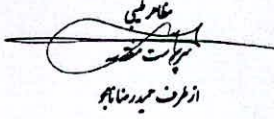 مظاهر طیبی
سرپرست منطقه
از طرف حیدررضا تاجو